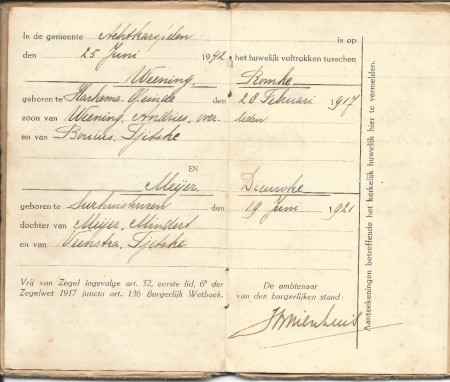 In de gemeente Achtkarspelen is op
den 25 Juni 1942 het huwelijk voltrokken tusschen
Weening, Romke
geboren te Harkema-Opeinde den 20 Februari 1917
zoon van Weening, Andries, over-
leden
en van Bouius, Tjitske
EN
Meijer, Dieuwke
geboren te Surhuisterveen den 19 Juni 1921
dochter van Meijer, Mindert
en van Veenstra, Tjitske
Vrij van Zegel ingevolge art. 32, eerste lid, 6º der
Zegelwet 1917 juncto art. 136 Burgerlijk Wetboek.
De ambtenaar
van den burgerlijken stand:
Aanteekeningen betreffende het kerkelijk huwelijk hier te vermelden.